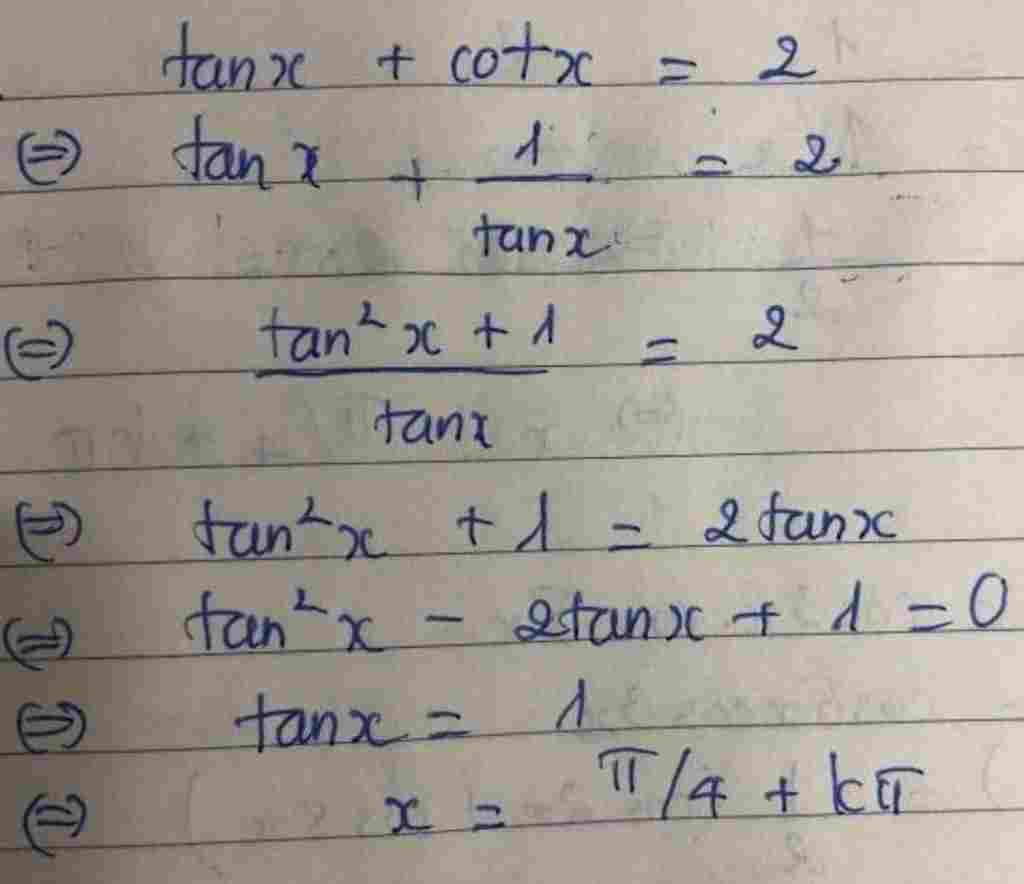 tanx + cotx = 2
(=) tan x + 1/tanx = 2
(=) (tan²x + 1)/tanx = 2
(=) tan²x + 1 = 2tanx
(=) tan²x - 2tanx + 1 = 0
(=) tanx = 1
(=) x = π/4 + kπ